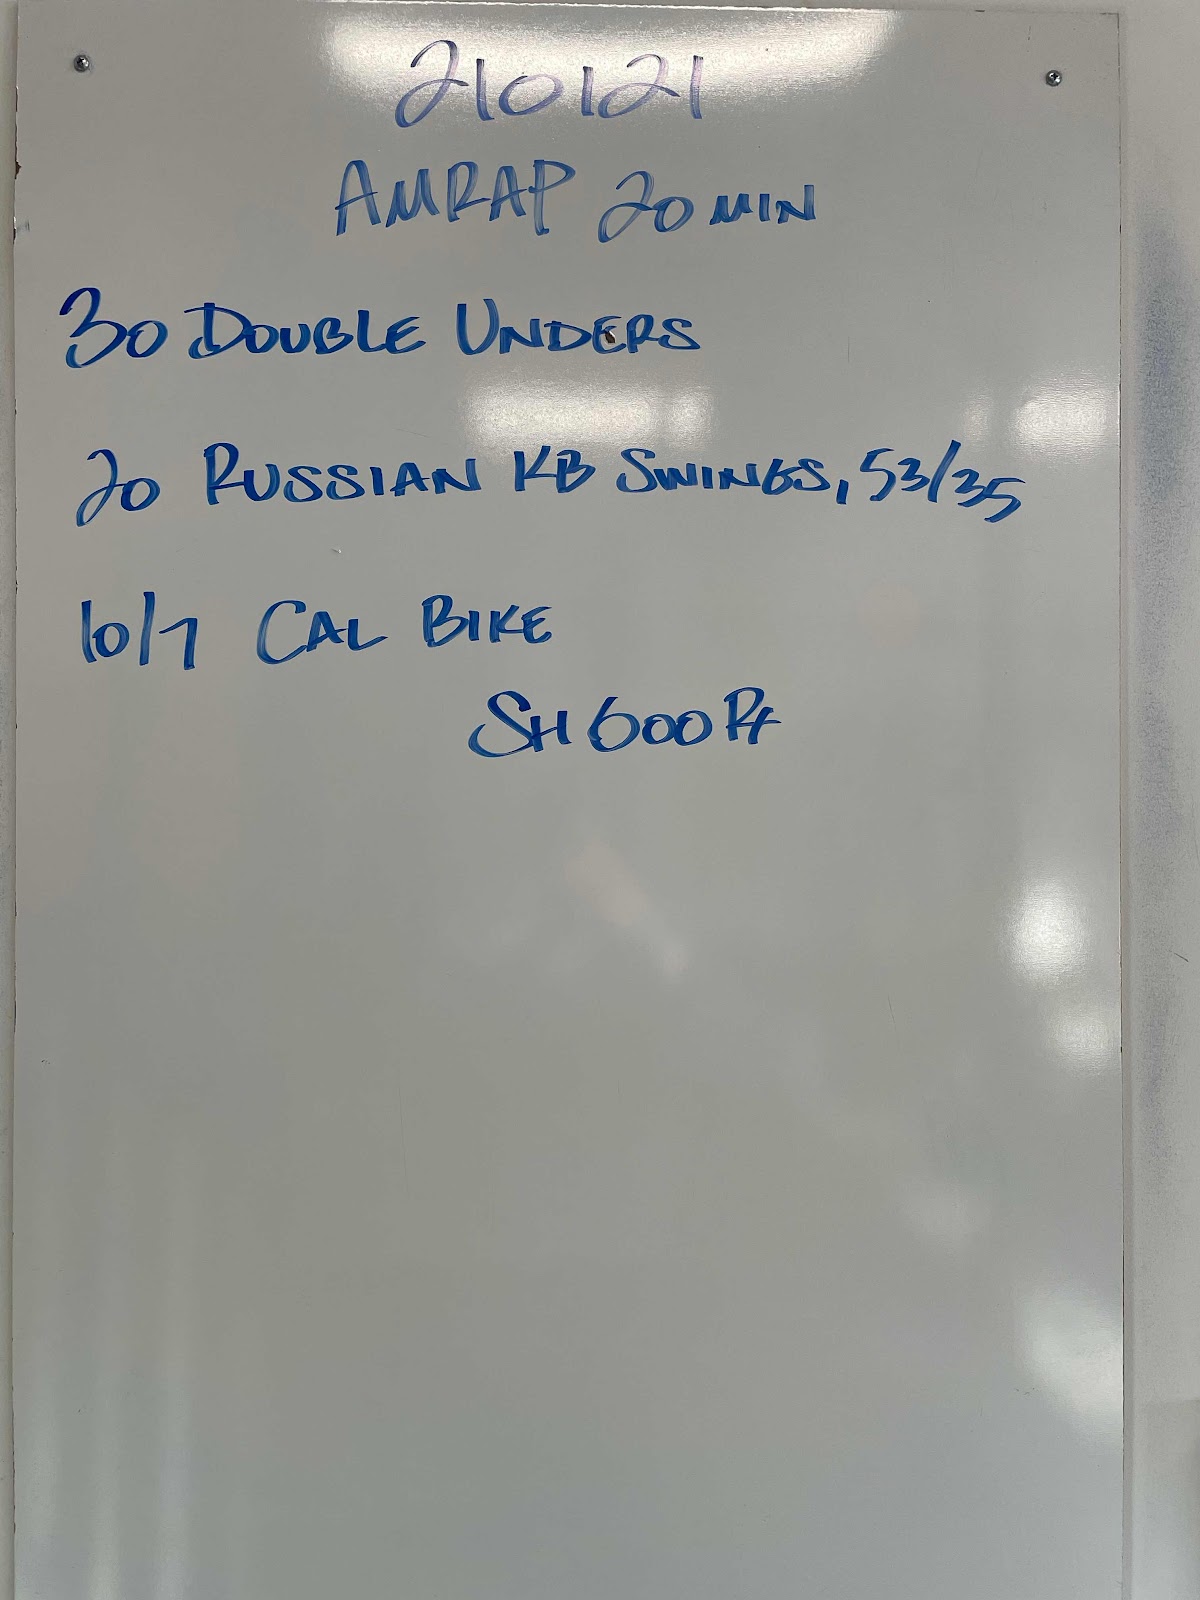 210121
AMRAP 20 MIN
30 DOUBLE UNDERS
20 RUSSIAN KB SWINGS, 53/35
10/7 CAL BIKE
SH 600 Rx